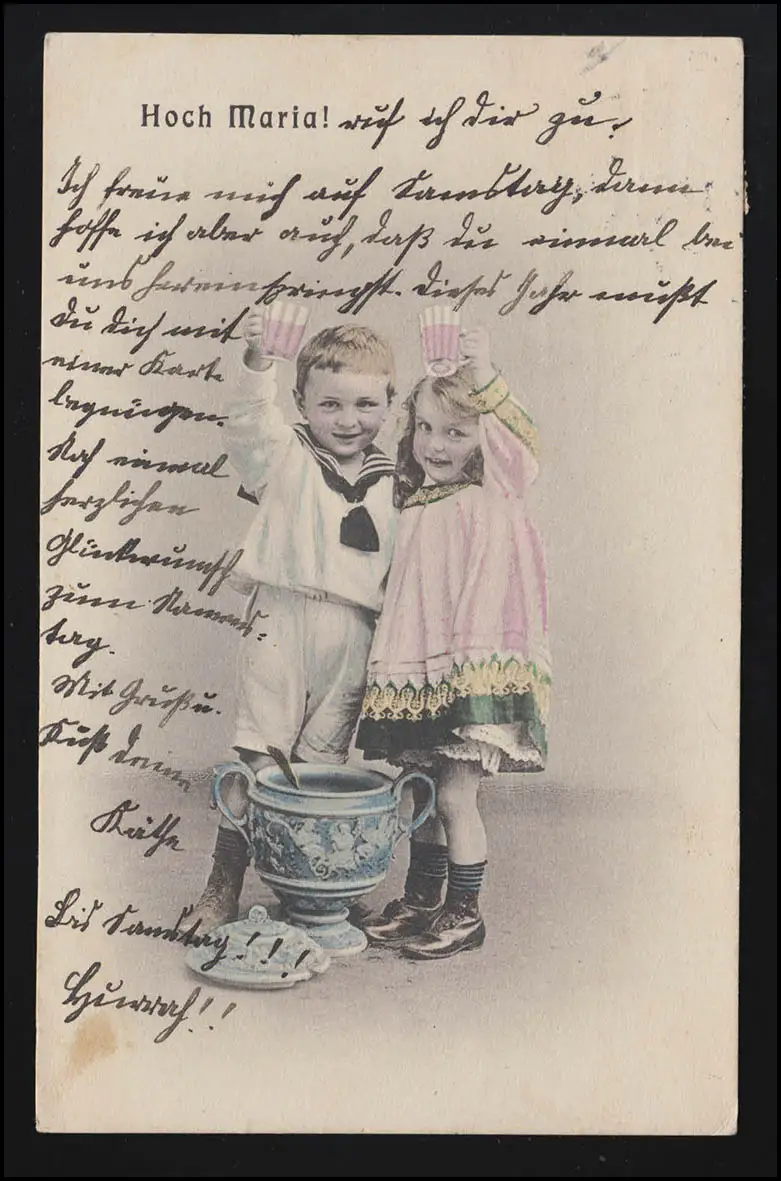 Hoch Maria! ruf ich dir zu!
Ich freue mich auf Samstag, dann
hoffe ich aber auch, daß du einmal bei
uns hereinspringst. Dieses Jahr mußt
Du dich mit
einer Karte
begnügen.
Noch einmal
herzlichen
Glückwunsch
zum Namens-
tag.
Mit Gruß u.
Kuß deine
Käthe
Bis Samstag!!!
Hurrah!!